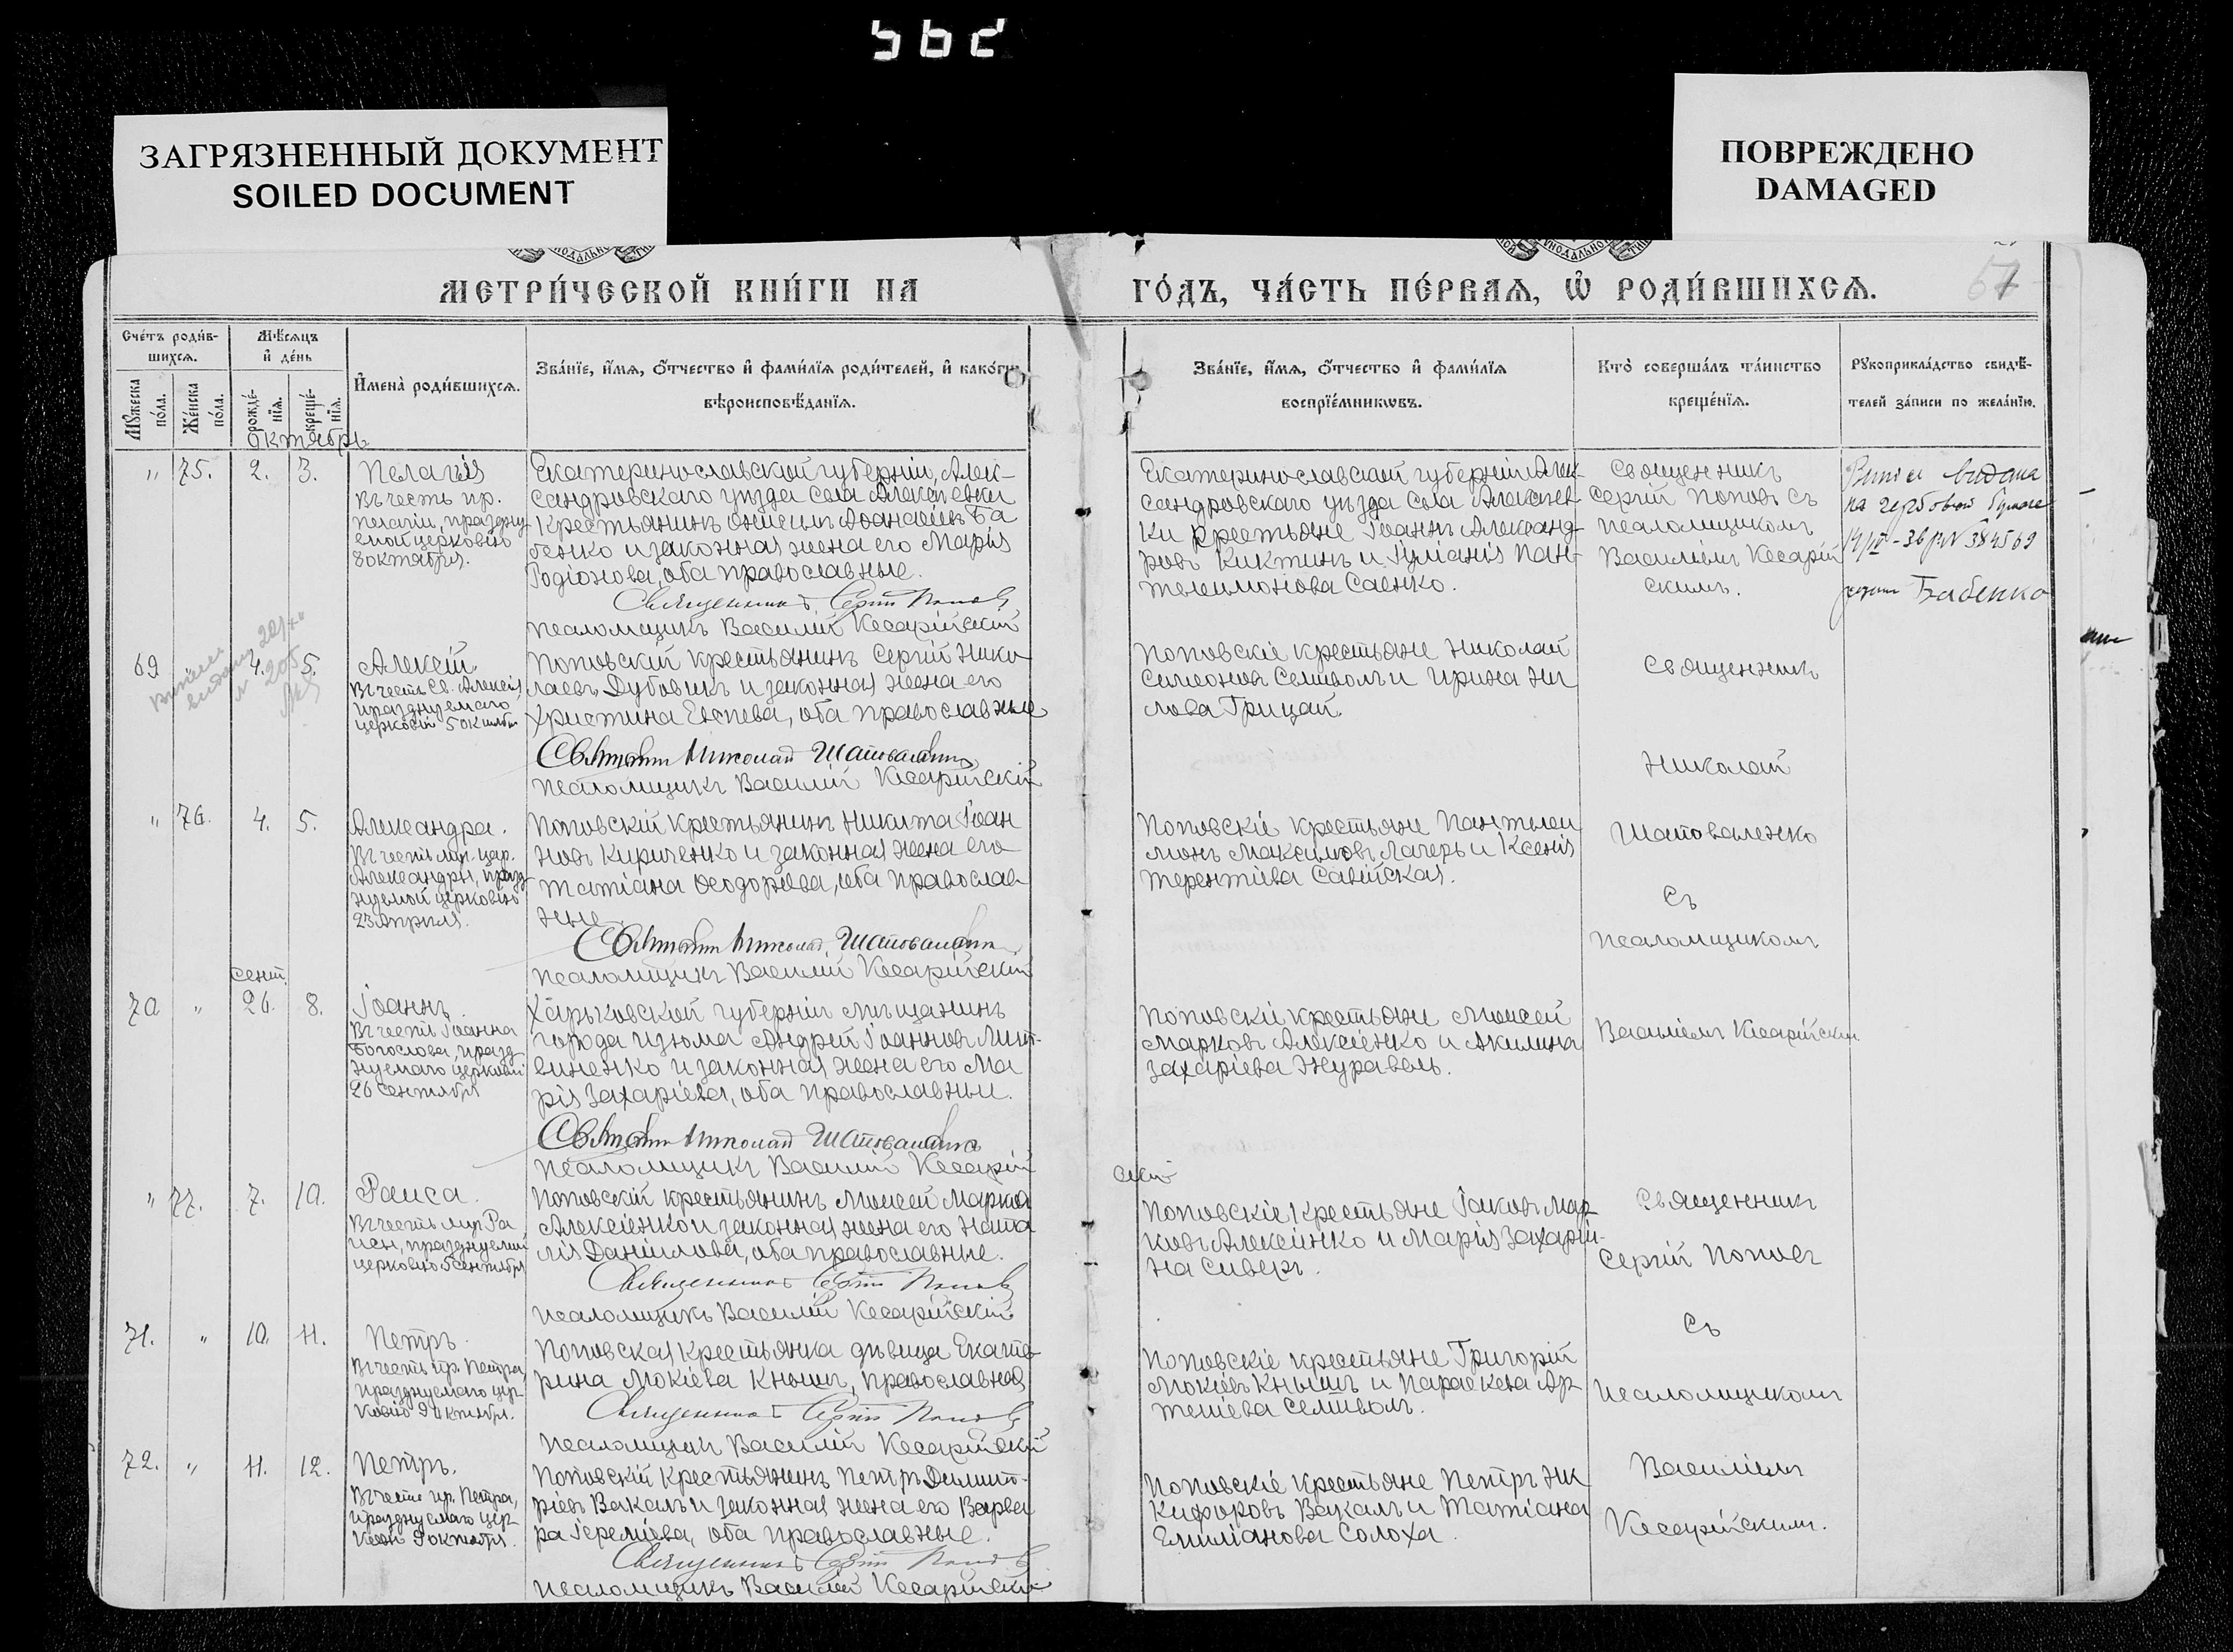 562
ЗАГРЯЗНЕННЫЙ ДОКУМЕНТ
SOILED DOCUMENT
ПОВРЕЖДЕНО
DAMAGED
МЕТРИ́ЧЕСКОЙ КНИ́ГИ НА
ГО́ДЪ, ЧА́СТЬ ПЕ́РВАЯ, Ѡ РОДИ́ВШИХСЯ.
Сче́тъ роди́в-
шихся.
Мѣ́сяцъ
и де́нь
Му́жеска по́ла.
Же́нска по́ла.
рожде́-
нїя.
креще́-
нїя.
Имена̀ роди́вшихся.
Зва́нїе, и́мя, о́тчество и фами́лїя роди́телей, и како́гѡ
вѣроисповѣ́данїя.
Зва́нїе, и́мя, о́тчество и фами́лїя
воспрїе́мникѡвъ.
Кто̀ соверша́лъ та́инство
креще́нїя.
Рꙋкоприкла́дство свидѣ́-
телей за́писи по жела́нїю.
Октябрь
" 75. 2. 3.
Пелагія
Въ честь пр.
Пелагіи, праздну-
емой церковію
8 октября.
Екатеринославской губерніи, Алек-
сандровскаго уѣзда села Алексѣевки
крестьянинъ Онисимъ Аѳанасіевъ Ба
бенко и законная жена его Марія
Родіонова, оба православные.
Священникъ Сергій Поповъ
Псаломщикъ Василій Кесарійскій
Екатеринославской губерніи Алек-
сандровскаго уѣзда села Алексѣев-
ки крестьяне Іоаннъ Александ-
ровъ Киктинъ и Іуліанія Пан-
телеимонова Саенко.
Священникъ
Сергій Поповъ съ
псаломщикомъ
Василіемъ Кесарій
скимъ.
видана
на гербовой бумаге
№ 384569
Бабенко
69 " 4. 5.
Алексій
Въ честь св. Алексія
празднуемаго
церковію 5 октября
Поповскій крестьянинъ Сергій Нико
лаевъ Дубовикъ и законная жена его
Христина Евсіева, оба православные
Священникъ Николай Шаповаленко
Псаломщикъ Василій Кесарійскій
Поповскіе крестьяне Николай
Симеоновъ Селиволъ и Ирина Ни
лова Грицай.
Священникъ
Николай
Шаповаленко
съ
псаломщикомъ
Василіемъ Кесарійскимъ
" 76. 4. 5.
Александра.
Въ честь мц. цар.
Александры, празд
нуемой церковію
23 Апрѣля.
Поповскій крестьянинъ Никита Іоан
новъ Кириченко и законная жена его
Татіана Ѳеодорова, оба православ
ные
Священникъ Николай Шаповаленко
Псаломщикъ Василій Кесарійскій
Поповскіе крестьяне Пантелеи
монъ Максимовъ Лагерь и Ксенія
Терентіева Савійская.
сент.
70 " 26. 8.
Іоаннъ.
Въ честь Іоанна
Богослова, празд
нуемаго церковію
26 сентября
Харьковской губерніи мѣщанинъ
города Изюма Андрей Іоанновъ Лит-
виненко и законная жена его Ма
рія Захаріева, оба православные.
Священникъ Николай Шаповаленко
Псаломщикъ Василій Кесарій
скій
Поповскіе крестьяне Моисей
Марковъ Алексіенко и Акилина
Захаріева Журавель.
" 77. 7. 10.
Раиса.
Въ честь мц. Ра
исы, празднуемой
церковію 5 сентября
Поповскій крестьянинъ Моисей Марковъ
Алексіенко и законная жена его Ната
лія Даніилова, оба православные.
Священникъ Сергій Поповъ
Псаломщикъ Василій Кесарійскій
Поповскіе крестьяне Іаковъ Мар
ковъ Алексіенко и Марія Захарі-
на Сиверъ.
Священникъ
Сергій Поповъ
съ
псаломщикомъ
Василіемъ
Кесарійскимъ.
71. " 10. 11.
Петръ.
Въ честь пр. Петра,
празднуемаго цер-
ковію 9 октября.
Поповская крестьянка дѣвица Екате-
рина Мокіева Кнышъ, православная
Священникъ Сергій Поповъ
Псаломщикъ Василій Кесарійскій
Поповскіе крестьяне Григорій
Мокіевъ Кнышъ и Параскева Ар
теміева Селиволъ.
72. " 11. 12.
Петръ.
Въ честь пр. Петра,
празднуемаго цер-
ковію 9 октября.
Поповскій крестьянинъ Петръ Димит-
ріевъ Вакалъ и законная жена его Варва
ра Іереміева, оба православные.
Священникъ Сергій Поповъ
Псаломщикъ Василій Кесарійскій
Поповскіе крестьяне Петръ Ни
кифоровъ Вакалъ и Татіана
Емиліанова Солоха.